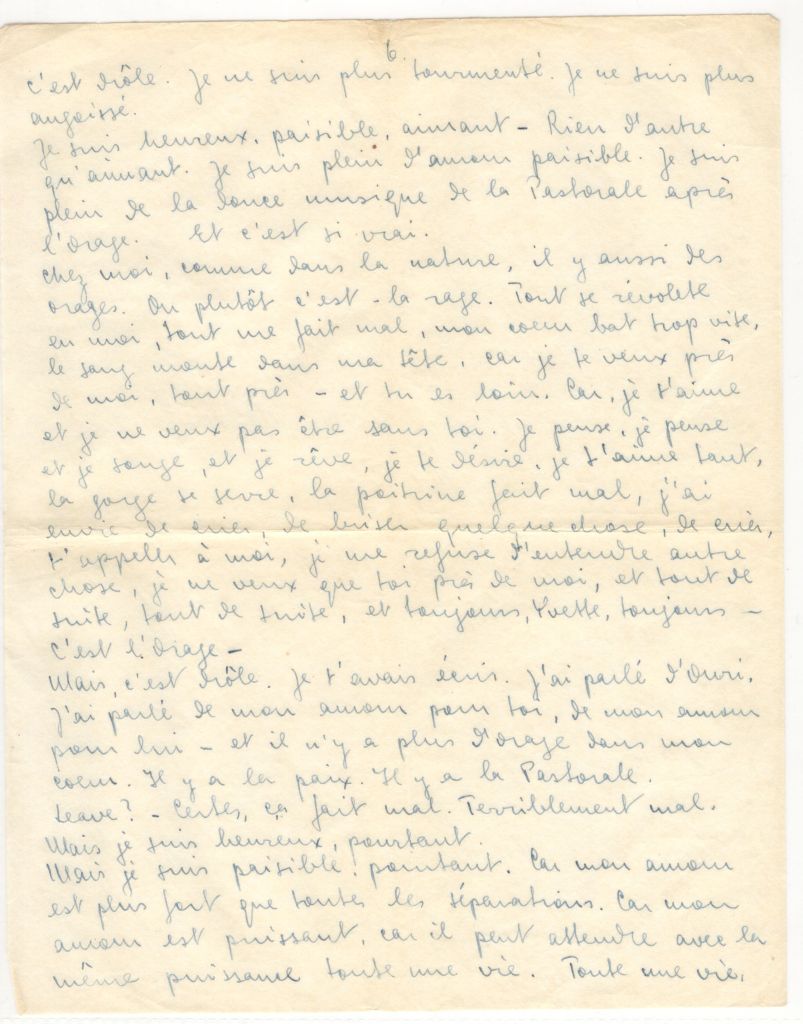 6
c'est drôle. Je ne suis plus tourmenté. Je ne suis plus
angoissé.
Je suis heureux, paisible, aimant – Rien d'autre
qu'aimant. Je suis plein d'amour paisible. Je suis
plein de la douce musique de la Pastorale après
l'Orage. Et c'est si vrai.
Chez moi, comme dans la nature, il y aussi des
orages. Ou plutôt c'est - la rage. Tout se révolete
en moi, tout me fait mal, mon coeur bat trop vite,
le sang monte dans ma tête, car je te veux près
de moi, tout près – et tu es loin. Car, je t'aime
et je ne veux pas être sans toi. Je pense, je pense
et je songe, et je rêve, je te désire, je t'aime tant,
la gorge se serre, la poitrine fait mal, j'ai
envie de crier, de briser quelque chose, de crier,
t'appeler à moi, je me refuse d'entendre autre
chose, je ne veux que toi près de moi, et tout de
suite, tout de suite, et toujours, Yvette, toujours –
C'est l'Orage –
Mais, c'est drôle. Je t'avais écris. J'ai parlé d'Ouri.
J'ai parlé de mon amour pour toi, de mon amour
pour lui – et il n'y a plus d'orage dans mon
coeur. Il y a la paix. Il y a la Pastorale.
Leave? – Certes, ça fait mal. Terriblement mal.
Mais je suis heureux, pourtant.
Mais je suis paisible, pourtant. Car mon amour
est plus fort que toutes les séparations. Car mon
amour est puissant, car il peut attendre avec la
même puissance toute une vie. Toute une vie,